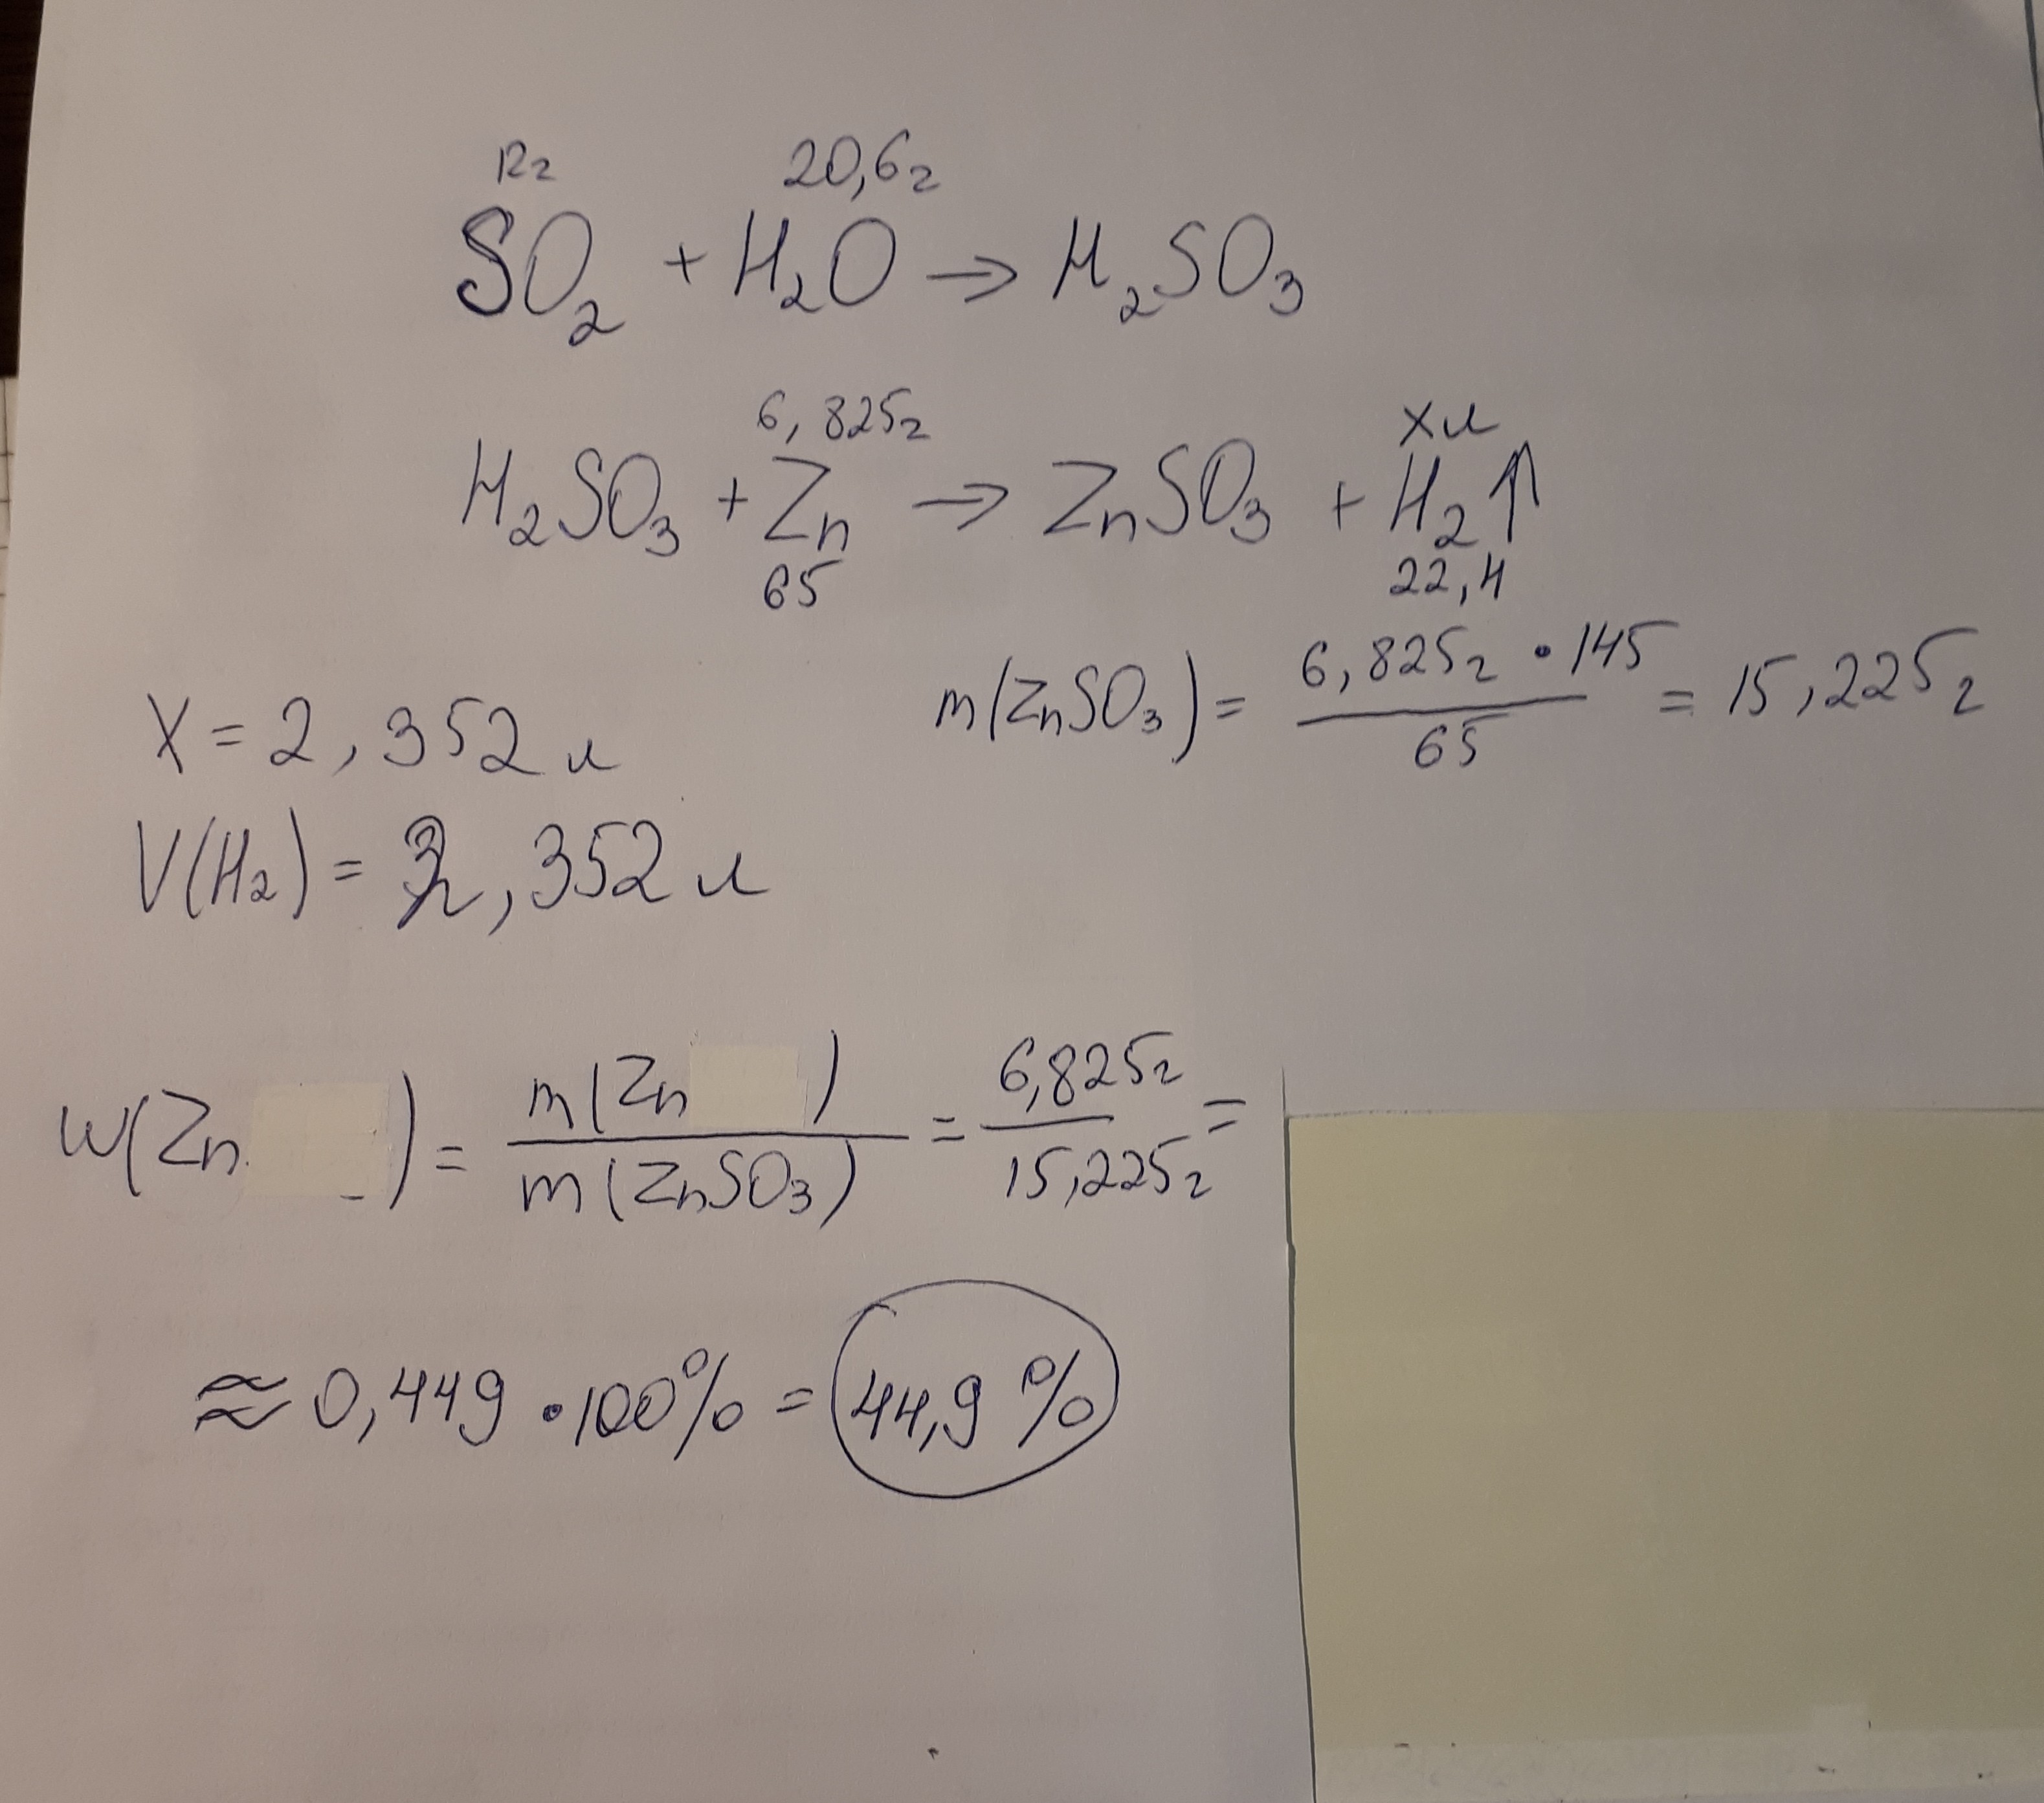 12г 20,6г
SO₂ + H₂O → H₂SO₃
6,825г xл
H₂SO₃ + Zn → ZnSO₃ + H₂↑
65 22,4
m(ZnSO₃) = 6,825г • 145 / 65 = 15,225г
X = 2,352л
V(H₂) = 2,352л
W(Zn ) = m(Zn ) / m(ZnSO₃) = 6,825г / 15,225г =
≈ 0,449 • 100% = 44,9%